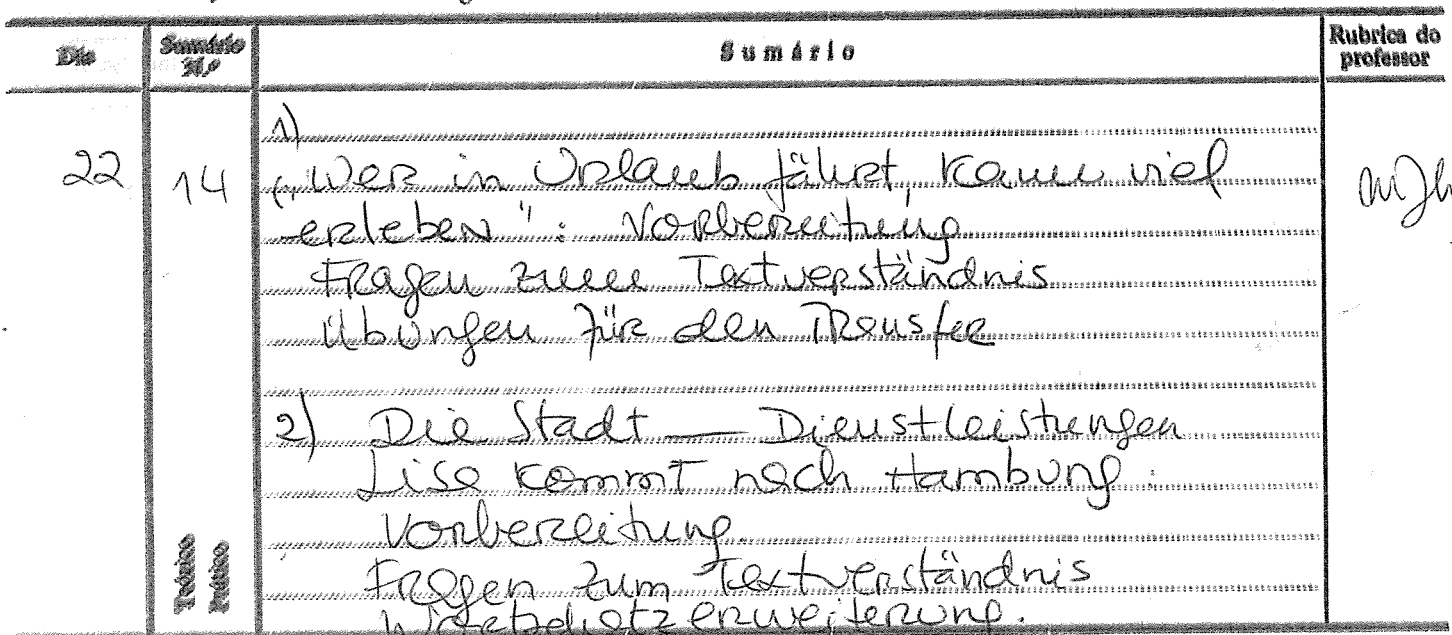 Dia
Sumário N.º
Sumário
Rubrica do professor
1)
22
14
„Wer in Urlaub fährt, kann viel
erleben": Vorbereitung
Fragen zum Textverständnis
Übungen für den Transfer
2) Die Stadt — Dienstleistungen
Lise kommt nach Hamburg:
Vorbereitung.
Fragen zum Textverständnis
Wortschatzerweiterung.
Teórico
Prático